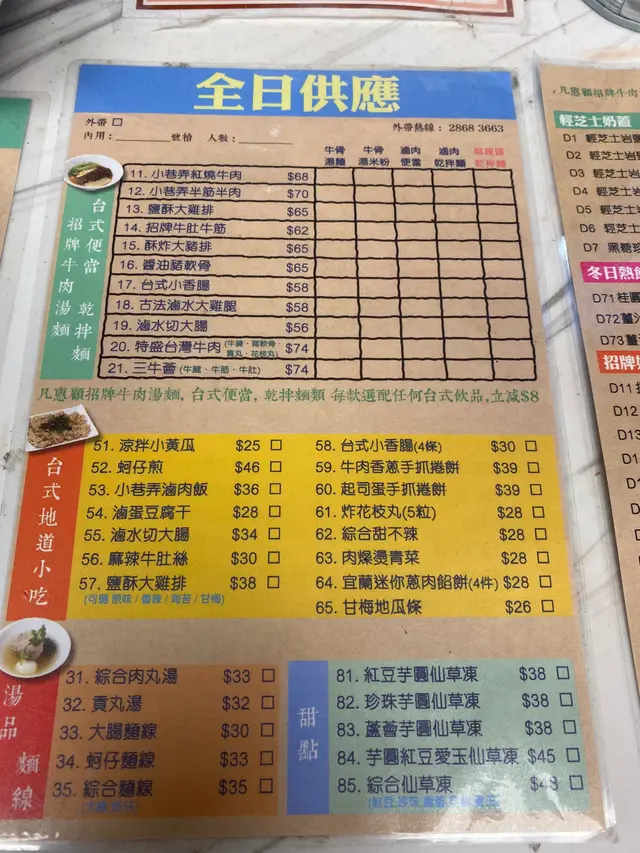 全日供應
外帶 □
外帶熱線： 2868 3663
內用：________ 號枱 人數：________
牛骨湯麵 牛骨湯米粉 滷肉便當 滷肉乾拌麵 麻辣醬乾拌麵
台式便當 乾拌麵
招牌牛肉湯麵
11. 小巷弄紅燒牛肉 $68
12. 小巷弄半筋半肉 $70
13. 鹽酥大雞排 $65
14. 招牌牛肚牛筋 $62
15. 酥炸大豬排 $65
16. 醬油豬軟骨 $65
17. 台式小香腸 $58
18. 古法滷水大雞腿 $58
19. 滷水切大腸 $56
20. 特盛台灣牛肉 (牛腱、豬軟骨、貢丸、花枝丸) $74
21. 三牛薈 (牛腱、牛筋、牛肚) $74
凡惠顧招牌牛肉湯麵, 台式便當, 乾拌麵類 每款選配任何台式飲品,立減$8
台式地道小吃
51. 涼拌小黃瓜 $25 □
52. 蚵仔煎 $46 □
53. 小巷弄滷肉飯 $36 □
54. 滷蛋豆腐干 $28 □
55. 滷水切大腸 $34 □
56. 麻辣牛肚絲 $30 □
57. 鹽酥大雞排 $38 □
(可選 原味 / 香辣 / 海苔 / 甘梅)
58. 台式小香腸(4條) $30 □
59. 牛肉香蔥手抓捲餅 $39 □
60. 起司蛋手抓捲餅 $39 □
61. 炸花枝丸(5粒) $28 □
62. 綜合甜不辣 $28 □
63. 肉燥燙青菜 $28 □
64. 宜蘭迷你蔥肉餡餅(4件) $28 □
65. 甘梅地瓜條 $26 □
湯品 麵線
31. 綜合肉丸湯 $33 □
32. 貢丸湯 $32 □
33. 大腸麵線 $30 □
34. 蚵仔麵線 $33 □
35. 綜合麵線 $35 □
甜點
81. 紅豆芋圓仙草凍 $38 □
82. 珍珠芋圓仙草凍 $38 □
83. 蘆薈芋圓仙草凍 $38 □
84. 芋圓紅豆愛玉仙草凍 $45 □
85. 綜合仙草凍 $48 □
凡惠顧招牌牛肉
輕芝士奶蓋
D1 輕芝士岩
D2 輕芝士岩
D3 輕芝士岩
D4 輕芝士
D5 輕芝士
D6 輕芝士
D7 黑糖珍
冬日熱飲
D71 桂圓
D72 薑汁
D73 薑
招牌
D11
D12
D13